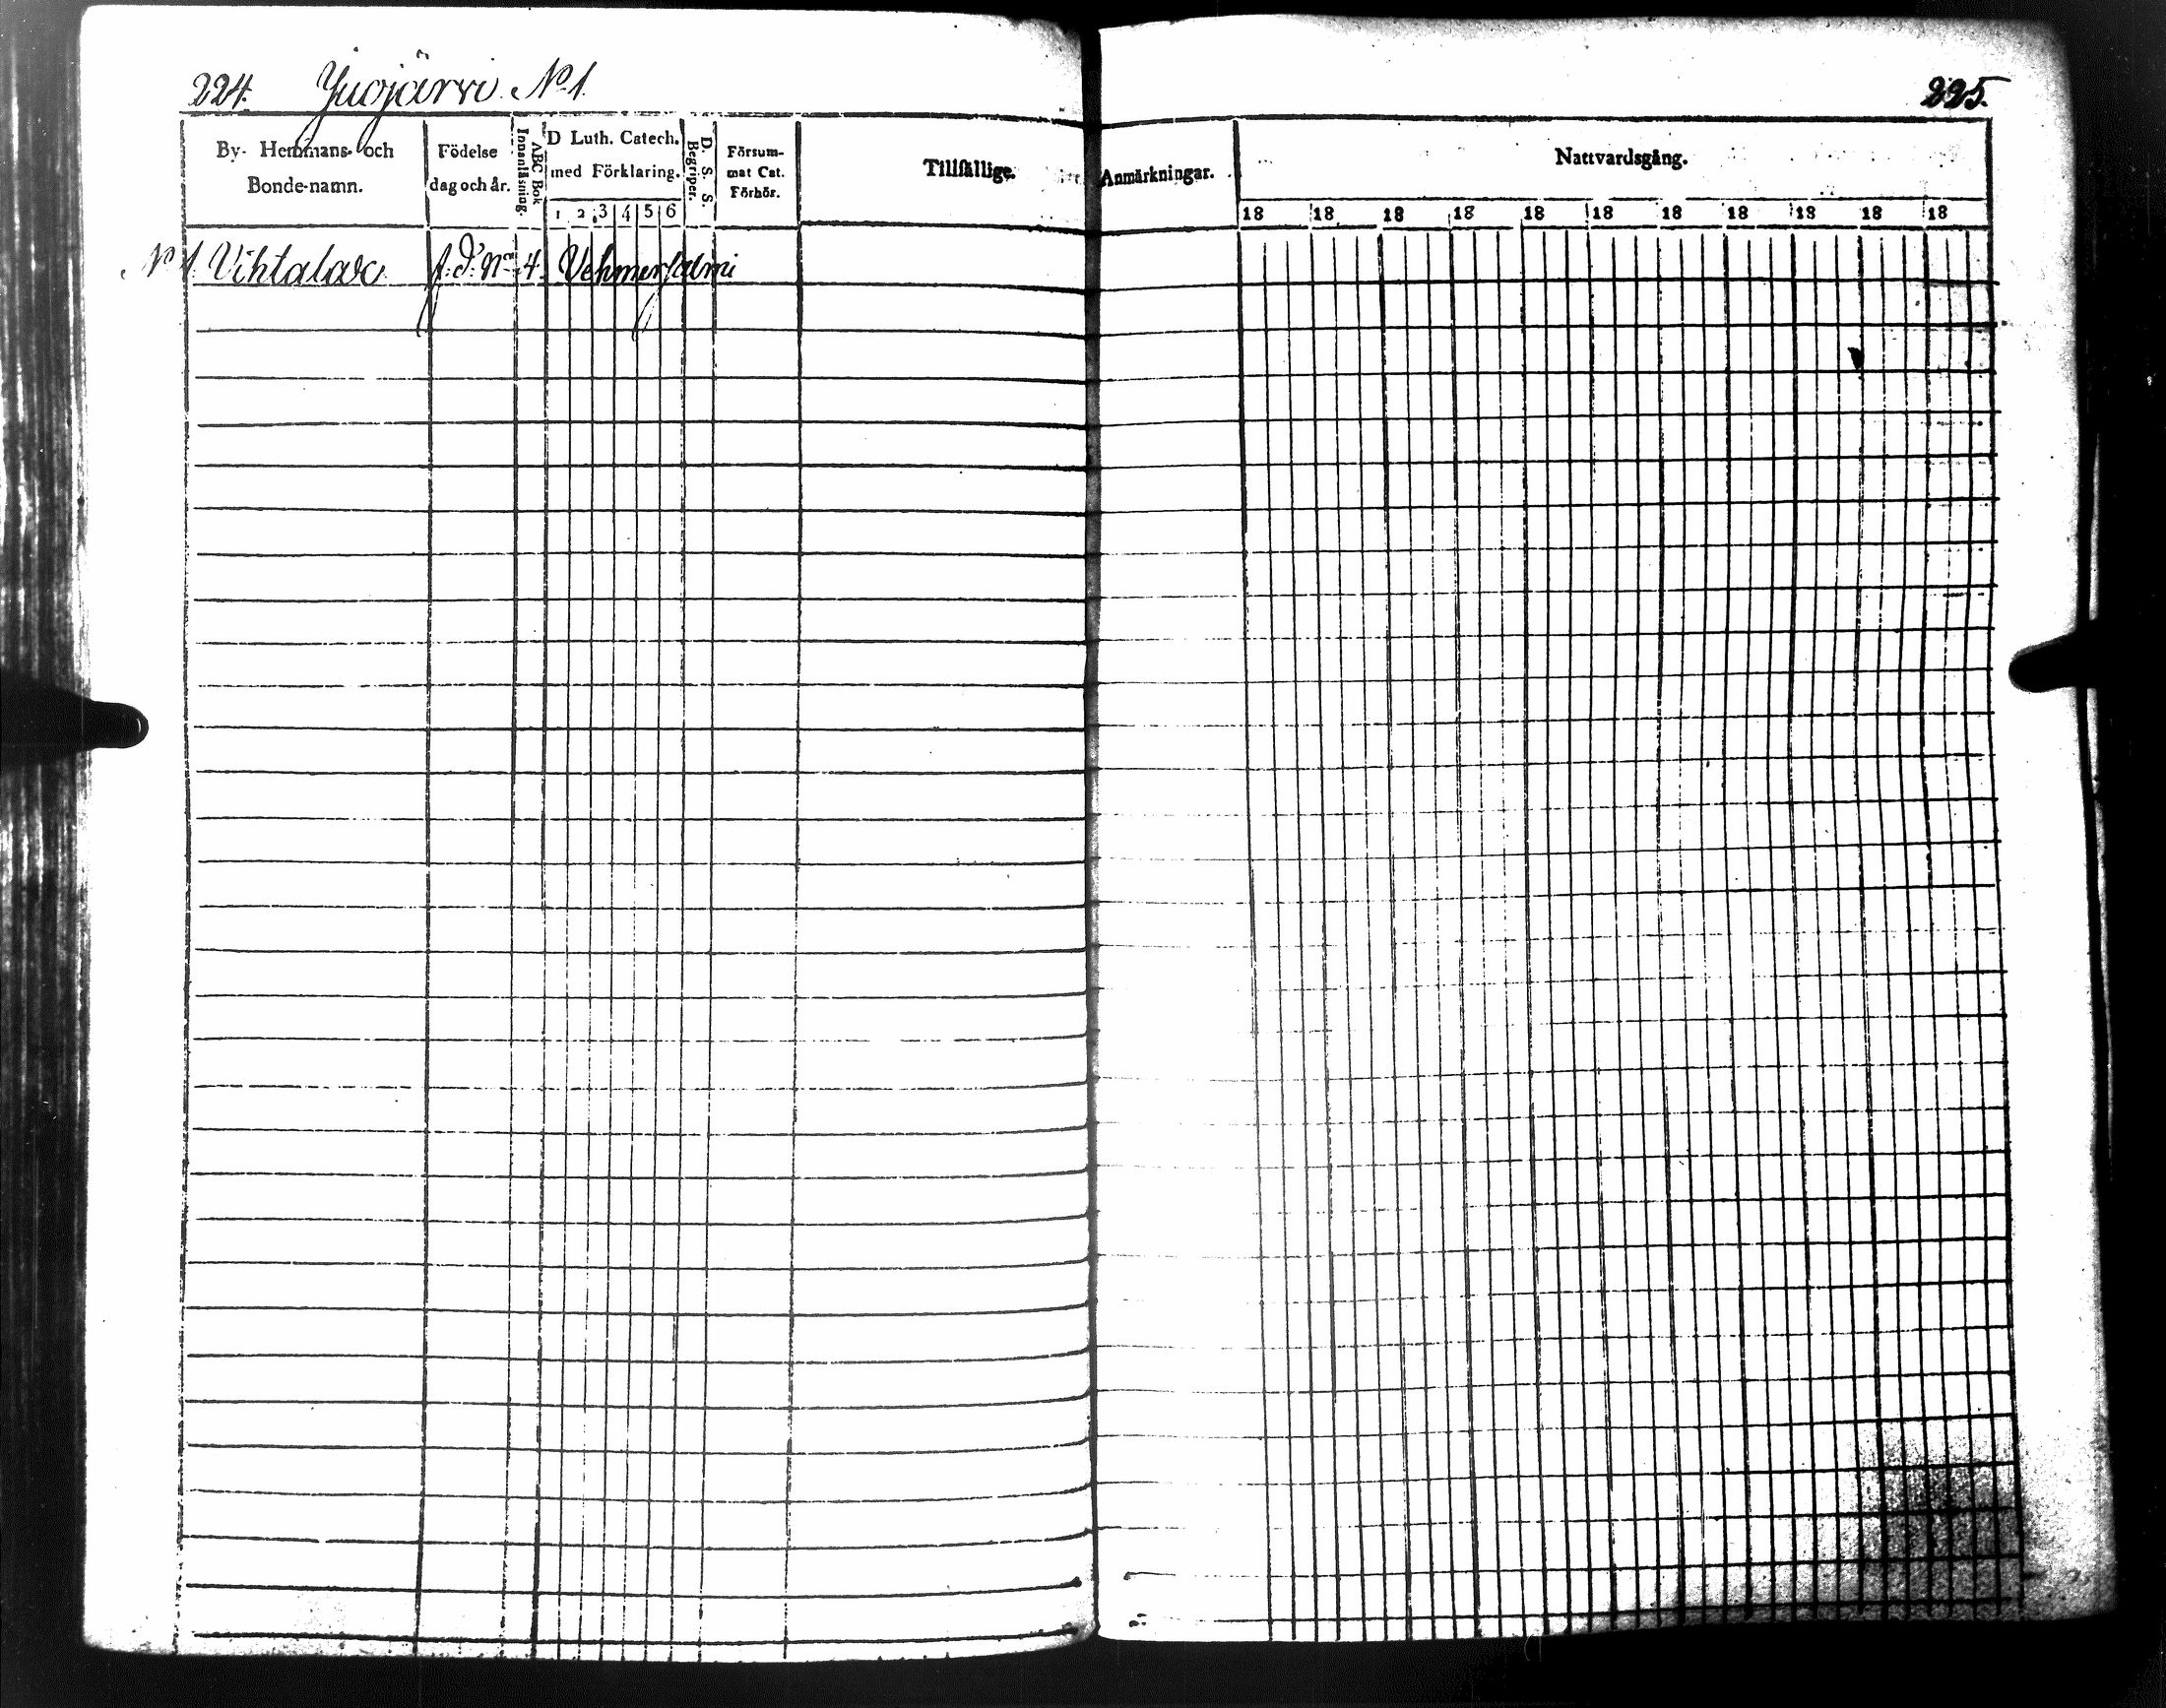 224. Juojärvi N:o 1. 225.
By- Hemmans- och Bonde-namn.
Födelse dag och år.
Innanläsning.
ABC Bok
D Luth. Catech. med Förklaring.
1 2 3 4 5 6
D. S. S. Begriper.
Försummat Cat. Förhör.
Tillfällige
Anmärkningar.
Nattvardsgång.
18 18 18 18 18 18 18 18 18 18 18
N:o 1. Vihtalax f. d. N:o 4. Vehmersalmi